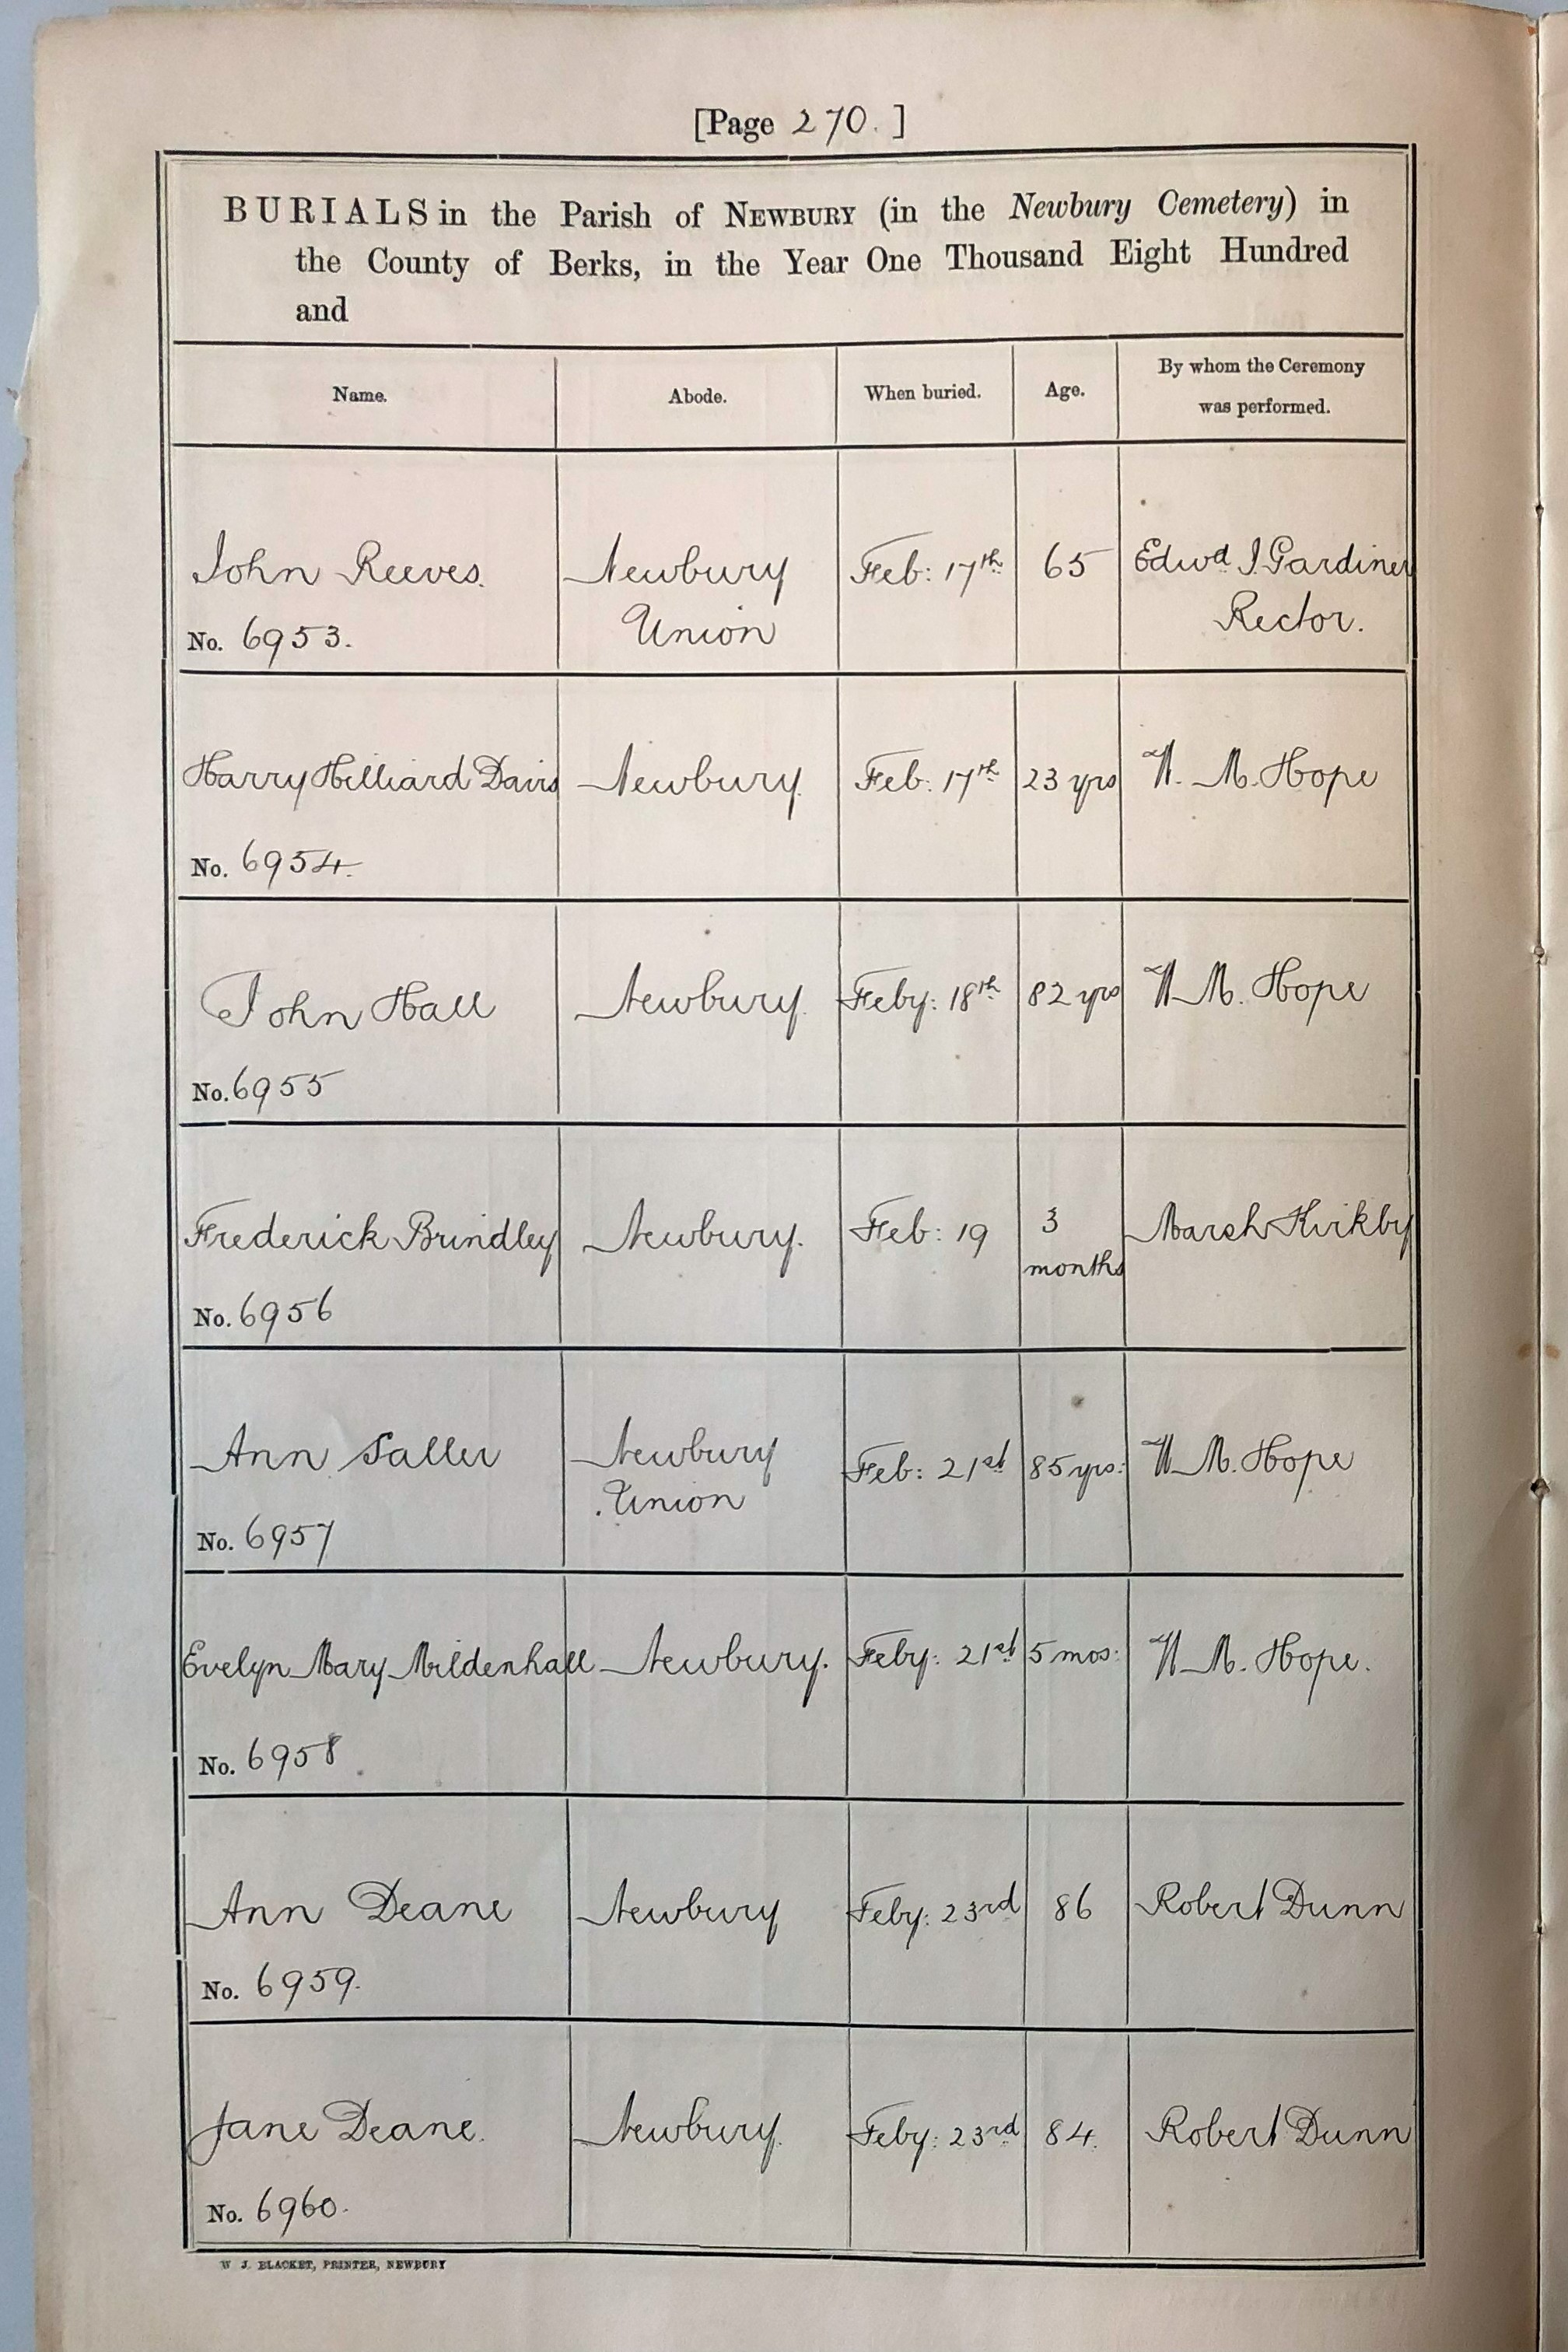 [Page 270.]
BURIALS in the Parish of NEWBURY (in the Newbury Cemetery) in
the County of Berks, in the Year One Thousand Eight Hundred
and
Name. Abode. When buried. Age. By whom the Ceremony was performed.
John Reeves. Newbury Feb: 17th 65 Edwd I. Gardiner
No. 6953. Union Rector.
Harry Hilliard Davis Newbury. Feb: 17th 23 yrs W. M. Hope
No. 6954.
John Hall Newbury. Feby: 18th 82 yrs W M. Hope
No. 6955
Frederick Brindley Newbury. Feb: 19 3
months Marsh Kirkby
No. 6956
Ann Salter Newbury Feb: 21st 85 yrs: W M. Hope
Union
No. 6957
Evelyn Mary Mildenhall Newbury. Feby: 21st 5 mos: W M. Hope.
No. 6958
Ann Deane Newbury Feby: 23rd 86 Robert Dunn
No. 6959.
Jane Deane. Newbury. Feby: 23rd 84. Robert Dunn
No. 6960.
W. J. BLACKET, PRINTER, NEWBURY